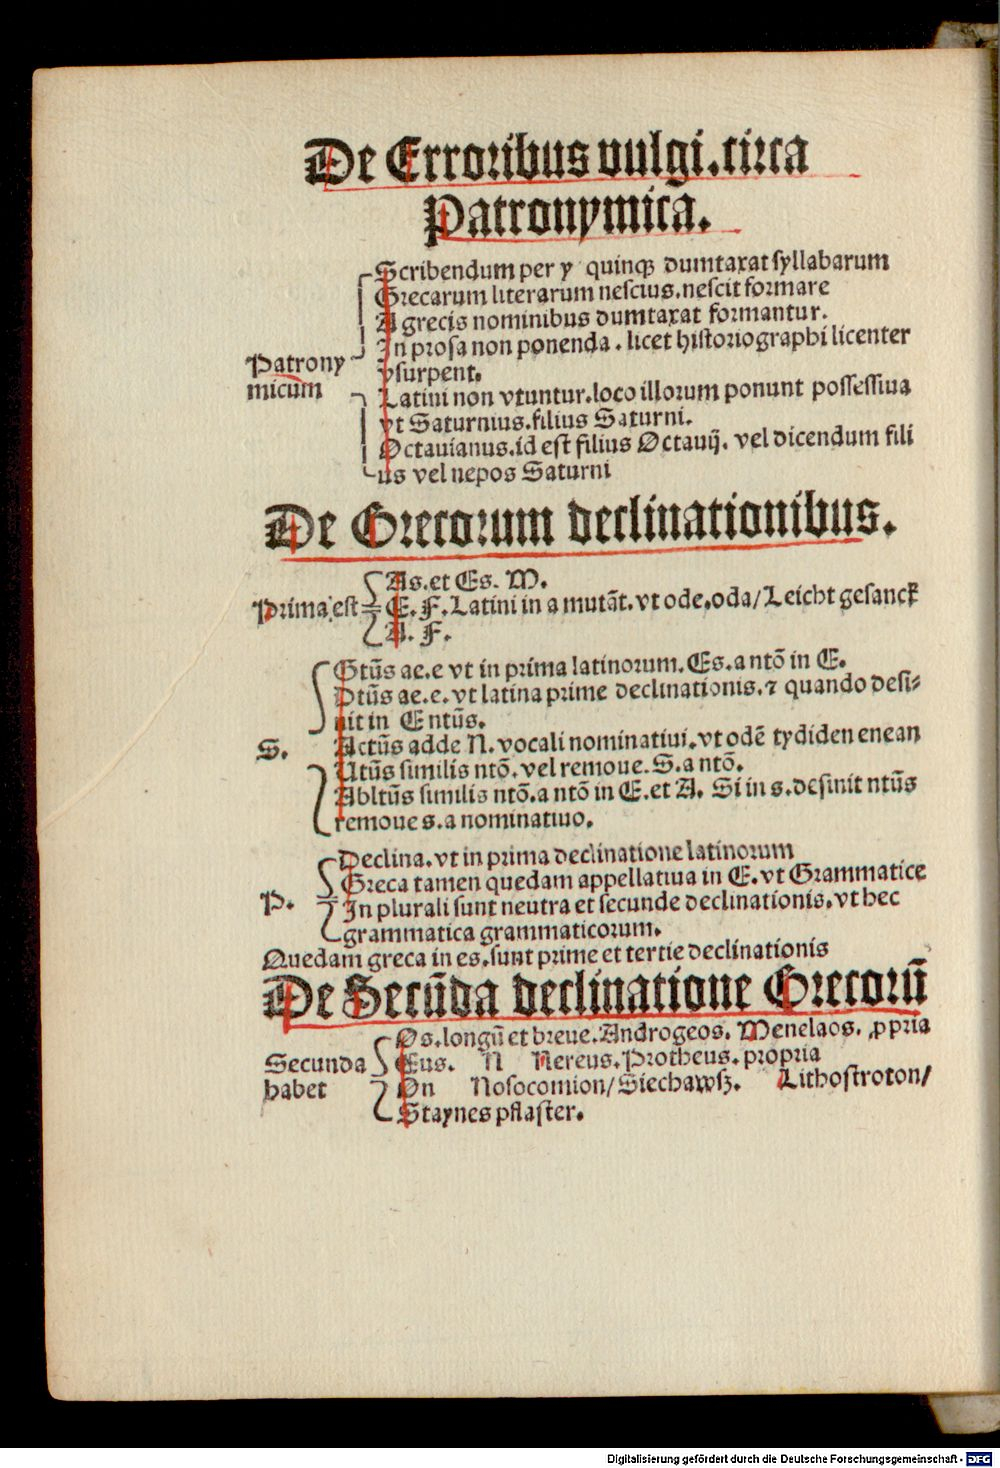 De Erroribus vulgi. circa
Patronymica.
Scribendum per y quinqꝫ dumtaxat syllabarum
Grecarum literarum nescius. nescit formare
A grecis nominibus dumtaxat formantur.
In prosa non ponenda. licet historiographi licenter
Patrony
vsurpent.
micum
Latini non vtuntur. loco illorum ponunt possessiua
vt Saturnius. filius Saturni.
Octauianus. id est filius Octauij. vel dicendum fili
us vel nepos Saturni
De Grecorum declinationibus.
As. et Es. M.
Prima est E. F. Latini in a mutãt. vt ode. oda/ Leicht gesanck
A. F.
Gtũs ae. e vt in prima latinorum. Es. a ntõ in E.
Dtũs ae. e. vt latina prime declinationis. ⁊ quando desi⸗
nit in E ntũs.
S. Actũs adde N. vocali nominatiui. vt odẽ tydiden enean
Utũs similis ntõ. vel remoue. S. a ntõ.
Abltũs similis ntõ. a ntõ in E. et A. Si in s. desinit ntũs
remoue s. a nominatiuo.
Declina. vt in prima declinatione latinorum
Greca tamen quedam appellatiua in E. vt Grammatice
P. In plurali sunt neutra et secunde declinationis. vt hec
grammatica grammaticorum.
Quedam greca in es. sunt prime et tertie declinationis
De Secũda declinatione Grecorũ
Os. longũ et breue. Androgeos. Menelaos. ꝓpria
Secunda Eus. N Nereus. Protheus. propria
habet On Nosocomion/ Siechawsz. Lithostroton/
Staynes pflaster.
Digitalisierung gefördert durch die Deutsche Forschungsgemeinschaft - DFG